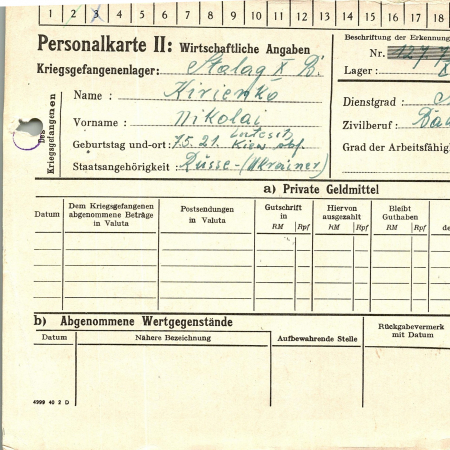 1 2 3 4 5 6 7 8 9 10 11 12 13 14 15 16 17 18
Personalkarte II: Wirtschaftliche Angaben
Beschriftung der Erkennung
Kriegsgefangenenlager: Stalag X B.
Nr.
Lager:
Des Kriegsgefangenen
Name: Kirienko
Vorname: Nikolai
Geburtstag und -ort: 7.5.21. Kiew
Staatsangehörigkeit: Russe-(Ukrainer)
Dienstgrad:
Zivilberuf:
Grad der Arbeitsfähig
a) Private Geldmittel
Datum
Dem Kriegsgefangenen abgenommene Beträge in Valuta
Postsendungen in Valuta
Gutschrift in
RM Rpf
Hiervon ausgezahlt
RM Rpf
Bleibt Guthaben
RM Rpf
de
b) Abgenommene Wertgegenstände
Datum
Nähere Bezeichnung
Aufbewahrende Stelle
Rückgabevermerk mit Datum
4999 40 2 D